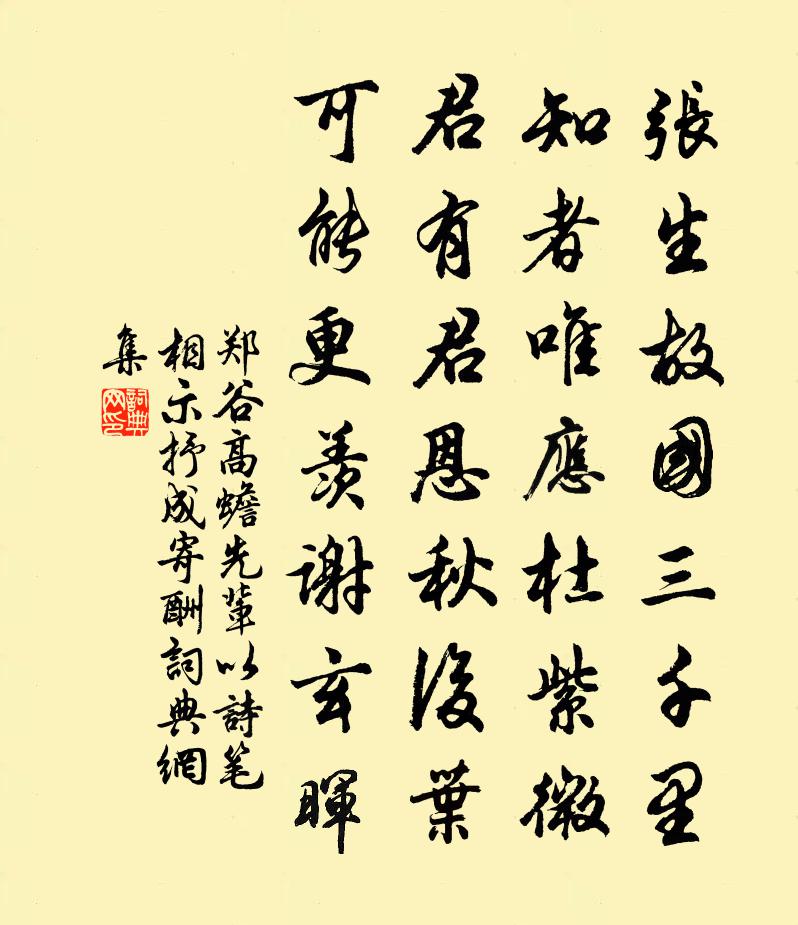 張生故國三千里
知者唯應杜紫微
君有君恩秋後葉
可能更羨謝玄暉
郑谷高蟾先輩以詩笔
相示抒成寄酬詞典網
集
詞典网印